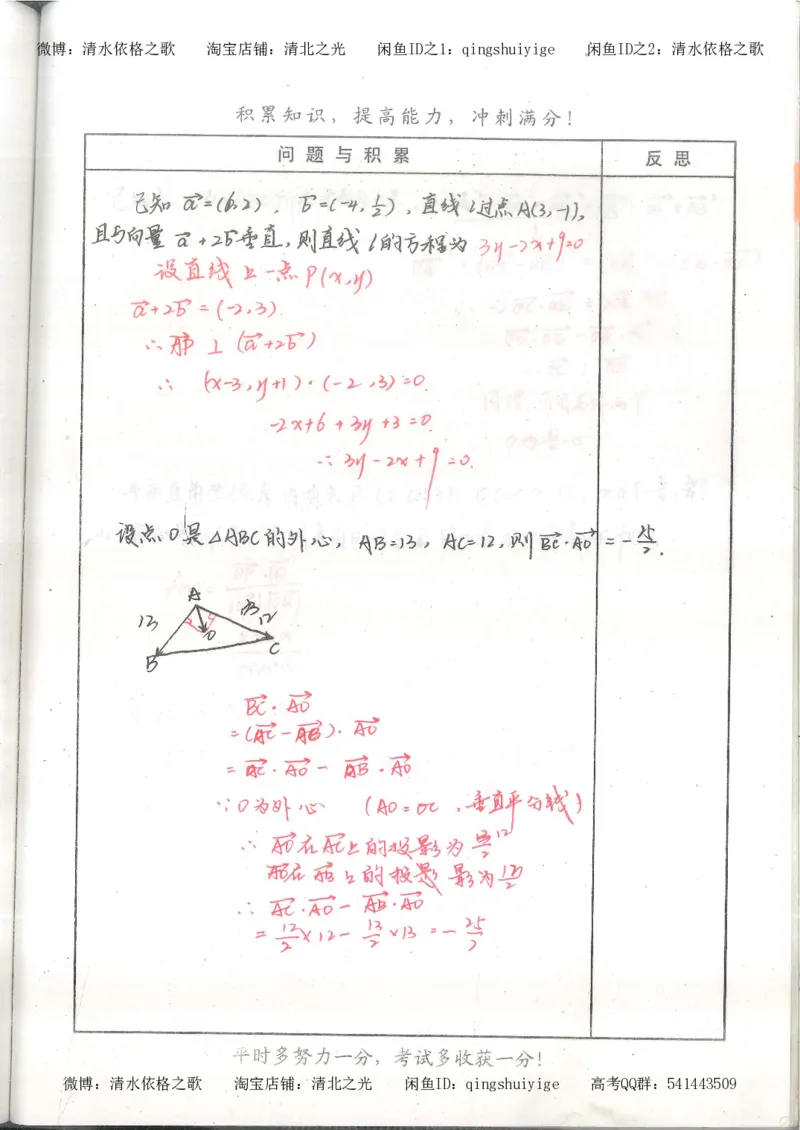 微博：清水依格之歌 淘宝店铺：清北之光 闲鱼ID之1：qingshuiyige 闲鱼ID之2：清水依格之歌
积累知识，提高能力，冲刺满分！
问题与积累 反思
已知 a⃗=(6,2)，b⃗=(-4,1/2)，直线l过点A(3,-1)，
且与向量 a⃗+2b⃗垂直，则直线l的方程为 3y-2x+9=0
设直线上一点P(x,y)
a⃗+2b⃗=(-2,3)
∴ AP⃗ ⊥ (a⃗+2b⃗)
∴ (x-3,y+1)·(-2,3)=0.
-2x+6+3y+3=0.
∴ 3y-2x+9=0.
设点O是△ABC的外心，AB=13，AC=12，则BC⃗·AO⃗=-25/2.
A
13 12
O
B C
BC⃗·AO⃗
=(AC⃗-AB⃗)·AO⃗
=AC⃗·AO⃗-AB⃗·AO⃗
∵O为外心 (AO=OC，垂直平分线)
∴ AO⃗在AC⃗上的投影为12/2
AO⃗在AB⃗上的投影为13/2
∴ AC⃗·AO⃗-AB⃗·AO⃗
=12/2×12-13/2×13=-25/2
平时多努力一分，考试多收获一分！
微博：清水依格之歌 淘宝店铺：清北之光 闲鱼ID：qingshuiyige 高考QQ群：541443509